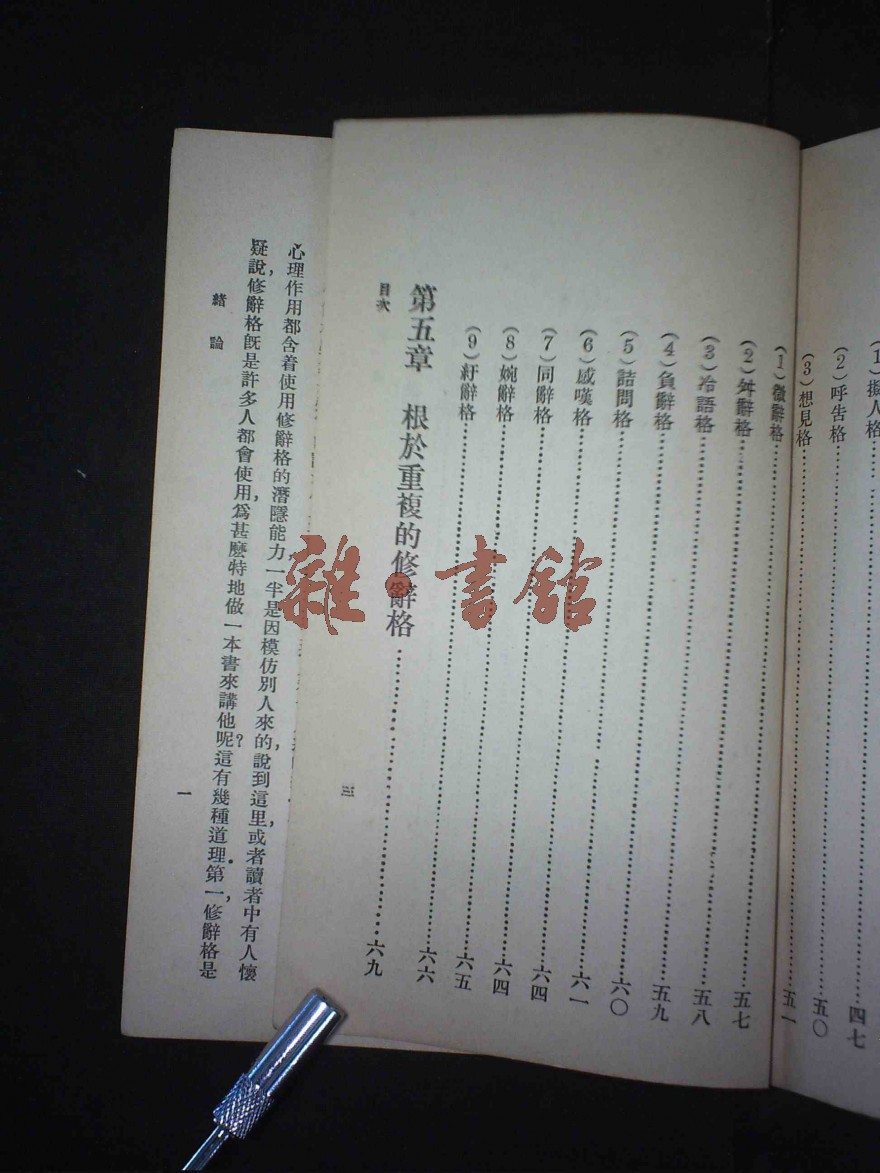 (1)擬人格……四七
(2)呼告格……五〇
(3)想見格……五一
(1)徵辭格……五七
(2)舛辭格……五八
(3)冷語格……五九
(4)負辭格……六〇
(5)詰問格……六一
(6)感嘆格……六四
(7)同辭格……六四
(8)婉辭格……六五
(9)紆辭格……六六
第五章　根於重複的修辭格……六九
目次
三
心理作用都含着使用修辭格的潛隱能力一半是因模仿別人來的,說到這里,或者讀者中有人懷
疑說,修辭格旣是許多人都會使用,爲甚麼特地做一本書來講他呢?這有幾種道理.第一,修辭格是
緒論
一
雜·書館